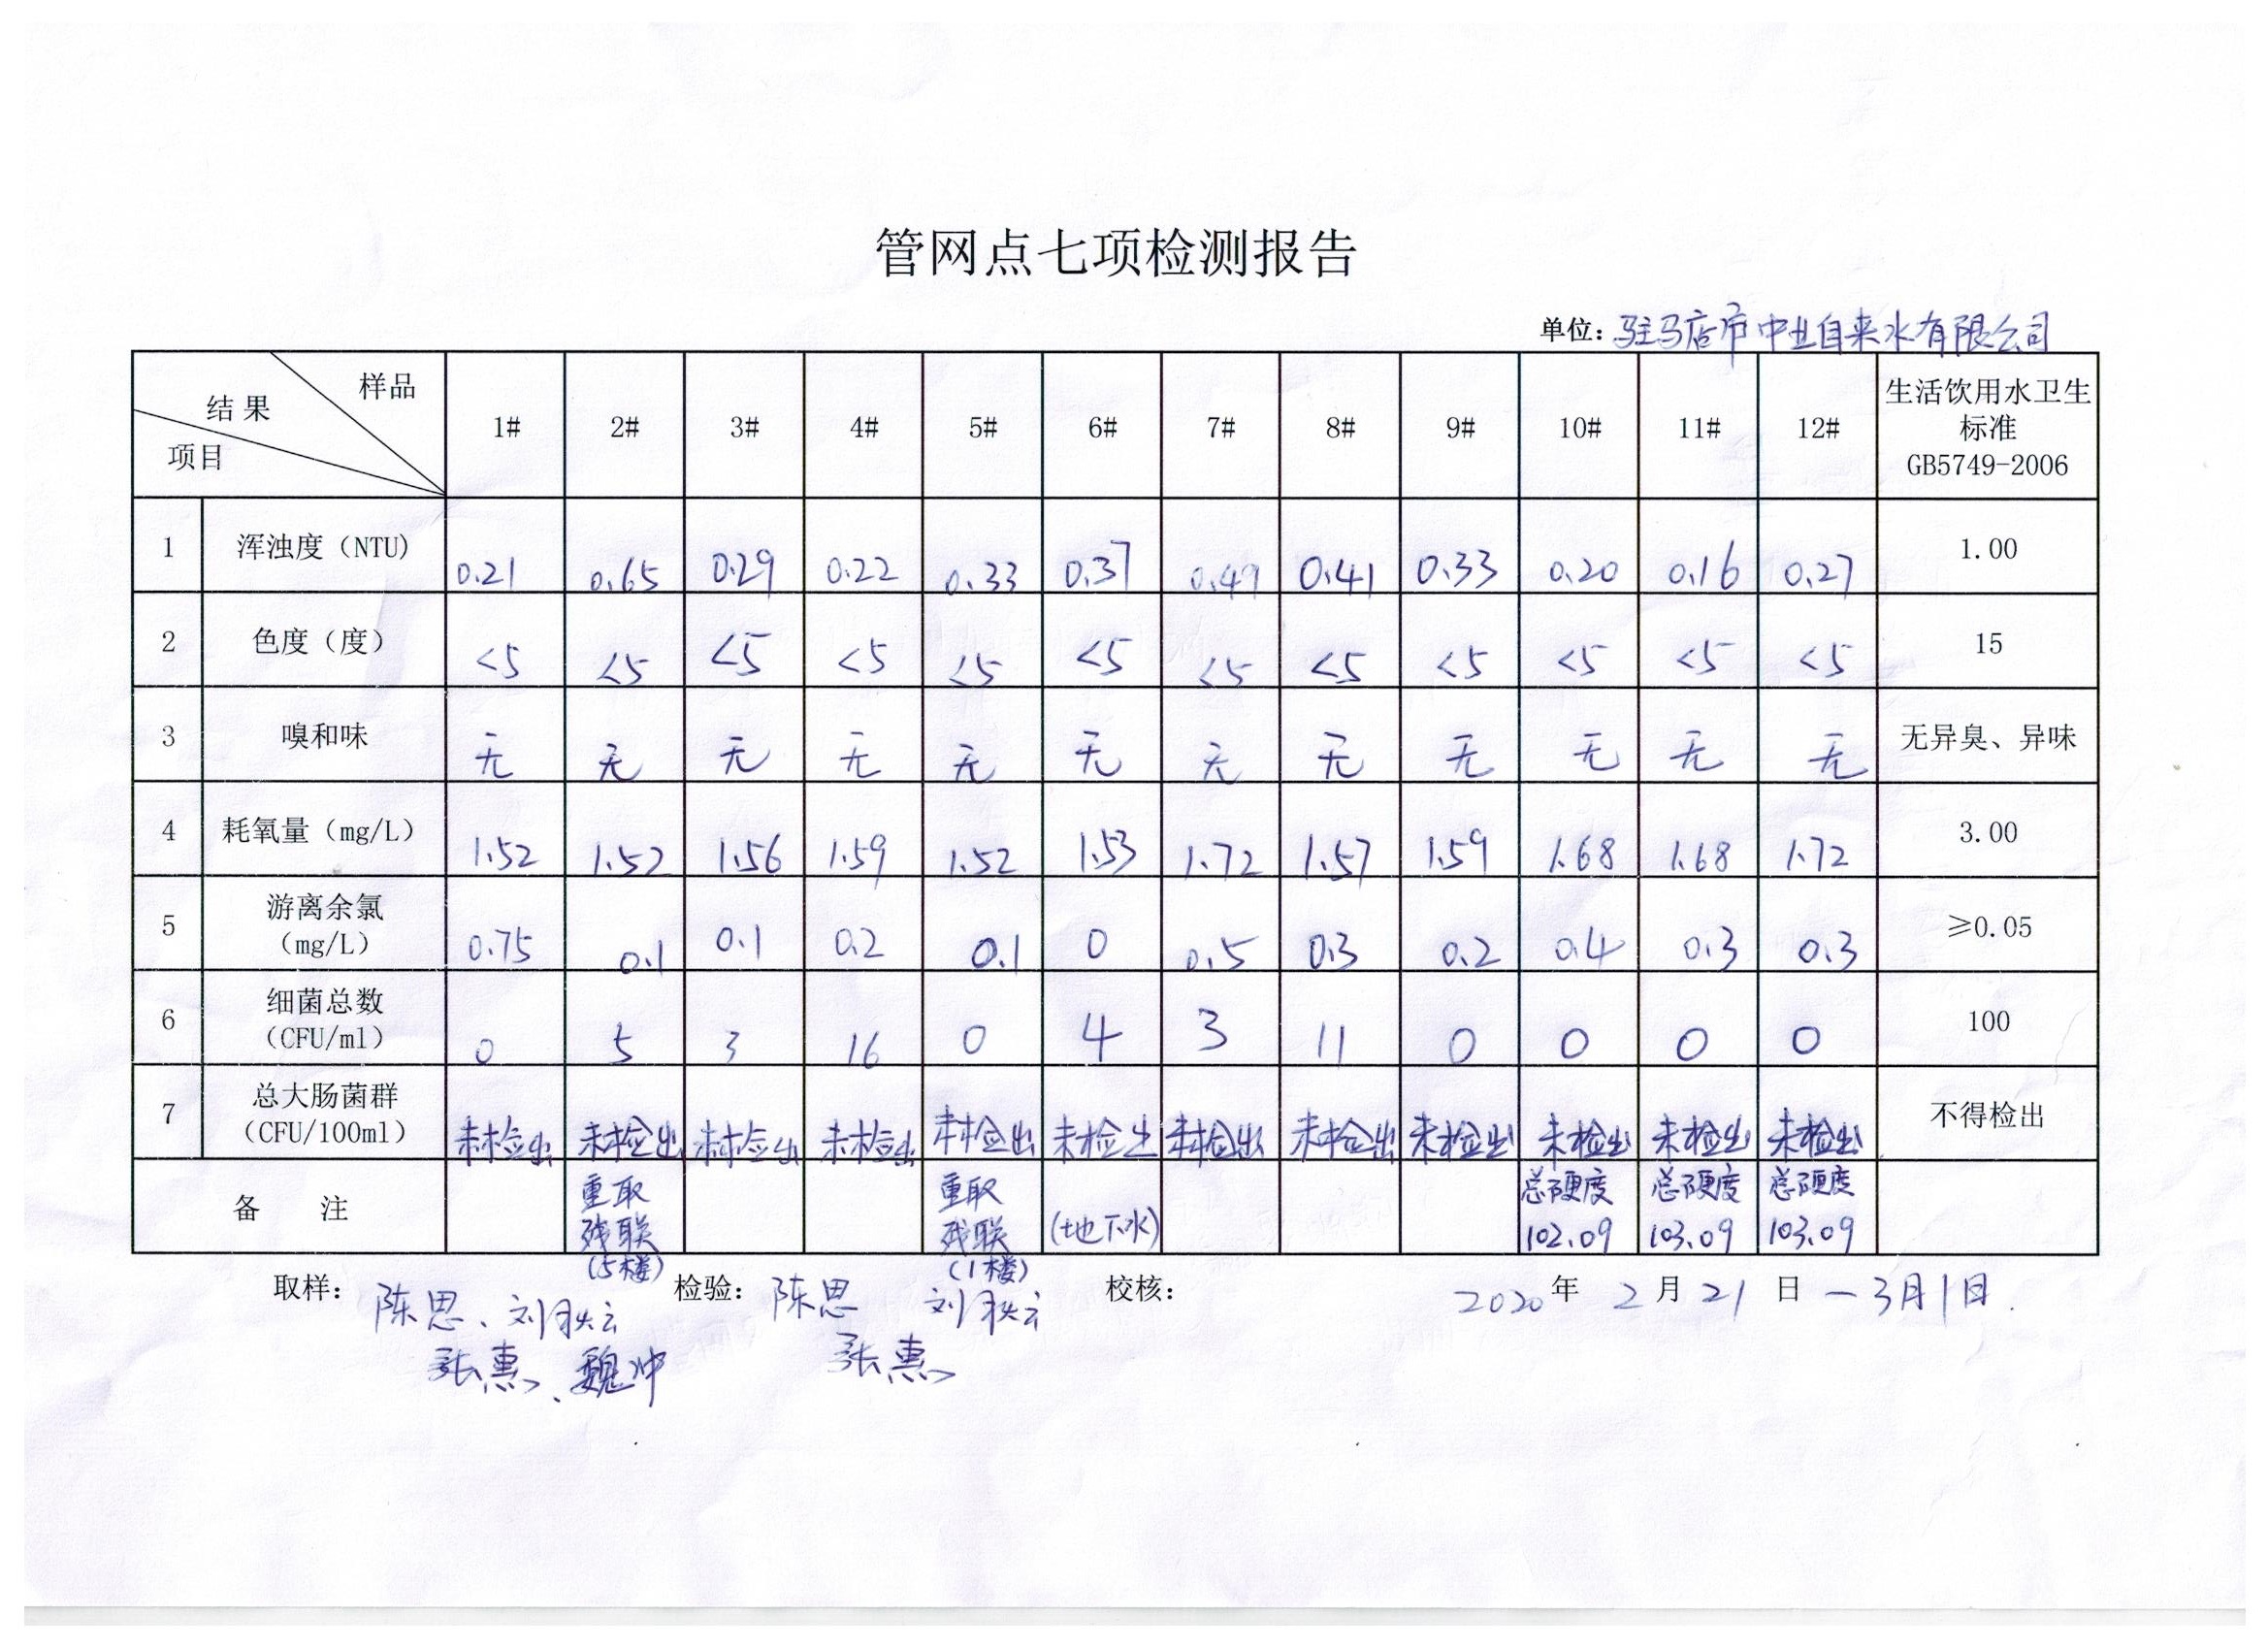 管网点七项检测报告
单位：驻马店市中业自来水有限公司
样品 结果 项目 1# 2# 3# 4# 5# 6# 7# 8# 9# 10# 11# 12# 生活饮用水卫生标准 GB5749-2006
1 浑浊度（NTU） 0.21 0.65 0.29 0.22 0.33 0.37 0.49 0.41 0.33 0.20 0.16 0.27 1.00
2 色度（度） <5 <5 <5 <5 <5 <5 <5 <5 <5 <5 <5 <5 15
3 嗅和味 无 无 无 无 无 无 无 无 无 无 无 无 无异臭、异味
4 耗氧量（mg/L） 1.52 1.52 1.56 1.59 1.52 1.53 1.72 1.57 1.59 1.68 1.68 1.72 3.00
5 游离余氯（mg/L） 0.75 0.1 0.1 0.2 0.1 0 0.5 0.3 0.2 0.4 0.3 0.3 ≥0.05
6 细菌总数（CFU/ml） 0 5 3 16 0 4 3 11 0 0 0 0 100
7 总大肠菌群（CFU/100ml） 未检出 未检出 未检出 未检出 未检出 未检出 未检出 未检出 未检出 未检出 未检出 未检出 不得检出
备 注 重取残联(5楼) 重取残联(1楼) (地下水) 总硬度102.09 总硬度103.09 总硬度103.09
取样： 陈思、刘秋云 检验： 陈思 刘秋云 校核： 2020年 2月21日－3月1日.
张惠、魏冲 张惠